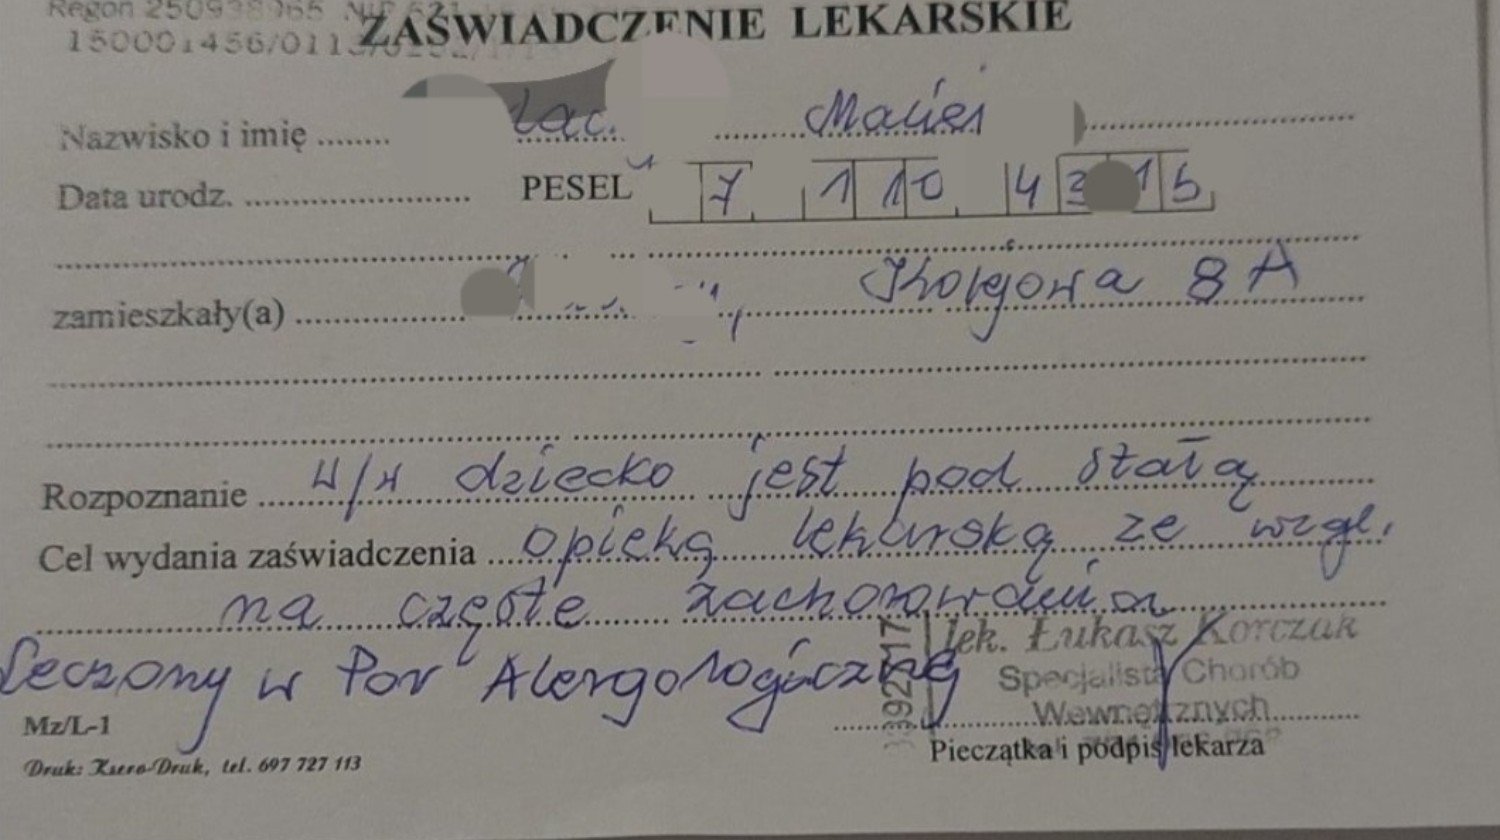 Regon 250938965 NIP 621
150001456/011
ZAŚWIADCZENIE LEKARSKIE
Nazwisko i imię ........ Maciej
Data urodz. ........ PESEL 7 1 1 0 4 3 1 5
zamieszkały(a) ........ Kolejowa 8A
Rozpoznanie w/w dziecko jest pod stałą
Cel wydania zaświadczenia opieką lekarską ze wzgl.
na częste zachorowania
Leczony w Por Alergologicznej
lek. Łukasz Korczak
Specjalista Chorób
Wewnętrznych
Mz/L-1
Pieczątka i podpis lekarza
Druk: Ksero-Druk, tel. 697 727 113